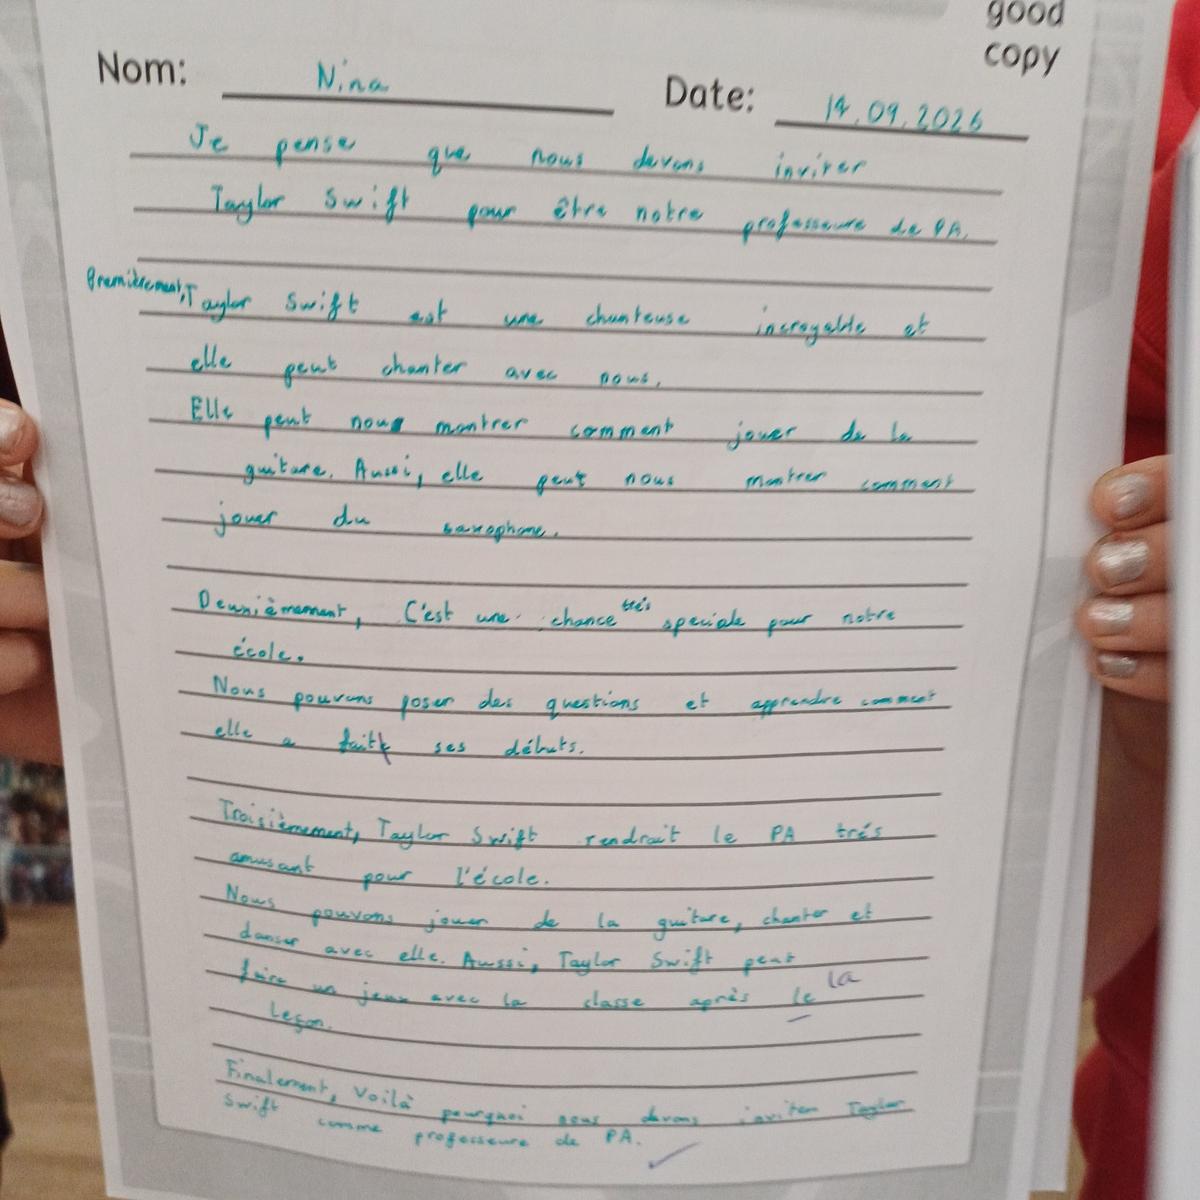 good
copy
Nom: Nina Date: 14.09.2026
Je pense que nous devons inviter
Taylor Swift pour être notre professeure de PA.
Premièrement, Taylor Swift est une chanteuse incroyable et
elle peut chanter avec nous.
Elle peut nous montrer comment jouer de la
guitare. Aussi, elle peut nous montrer comment
jouer du saxophone.
Deuxièmement, C'est une chance très speciale pour notre
école.
Nous pouvons poser des questions et apprendre comment
elle a fait ses débuts.
Troisièmement, Taylor Swift rendrait le PA trés
amusant pour l'école.
Nous pouvons jouer de la guitare, chanter et
danser avec elle. Aussi, Taylor Swift peut
faire un jeux avec la classe après le la
leçon.
Finalement, Voilà pourquoi nous devons inviter Taylor
Swift comme professeure de PA.